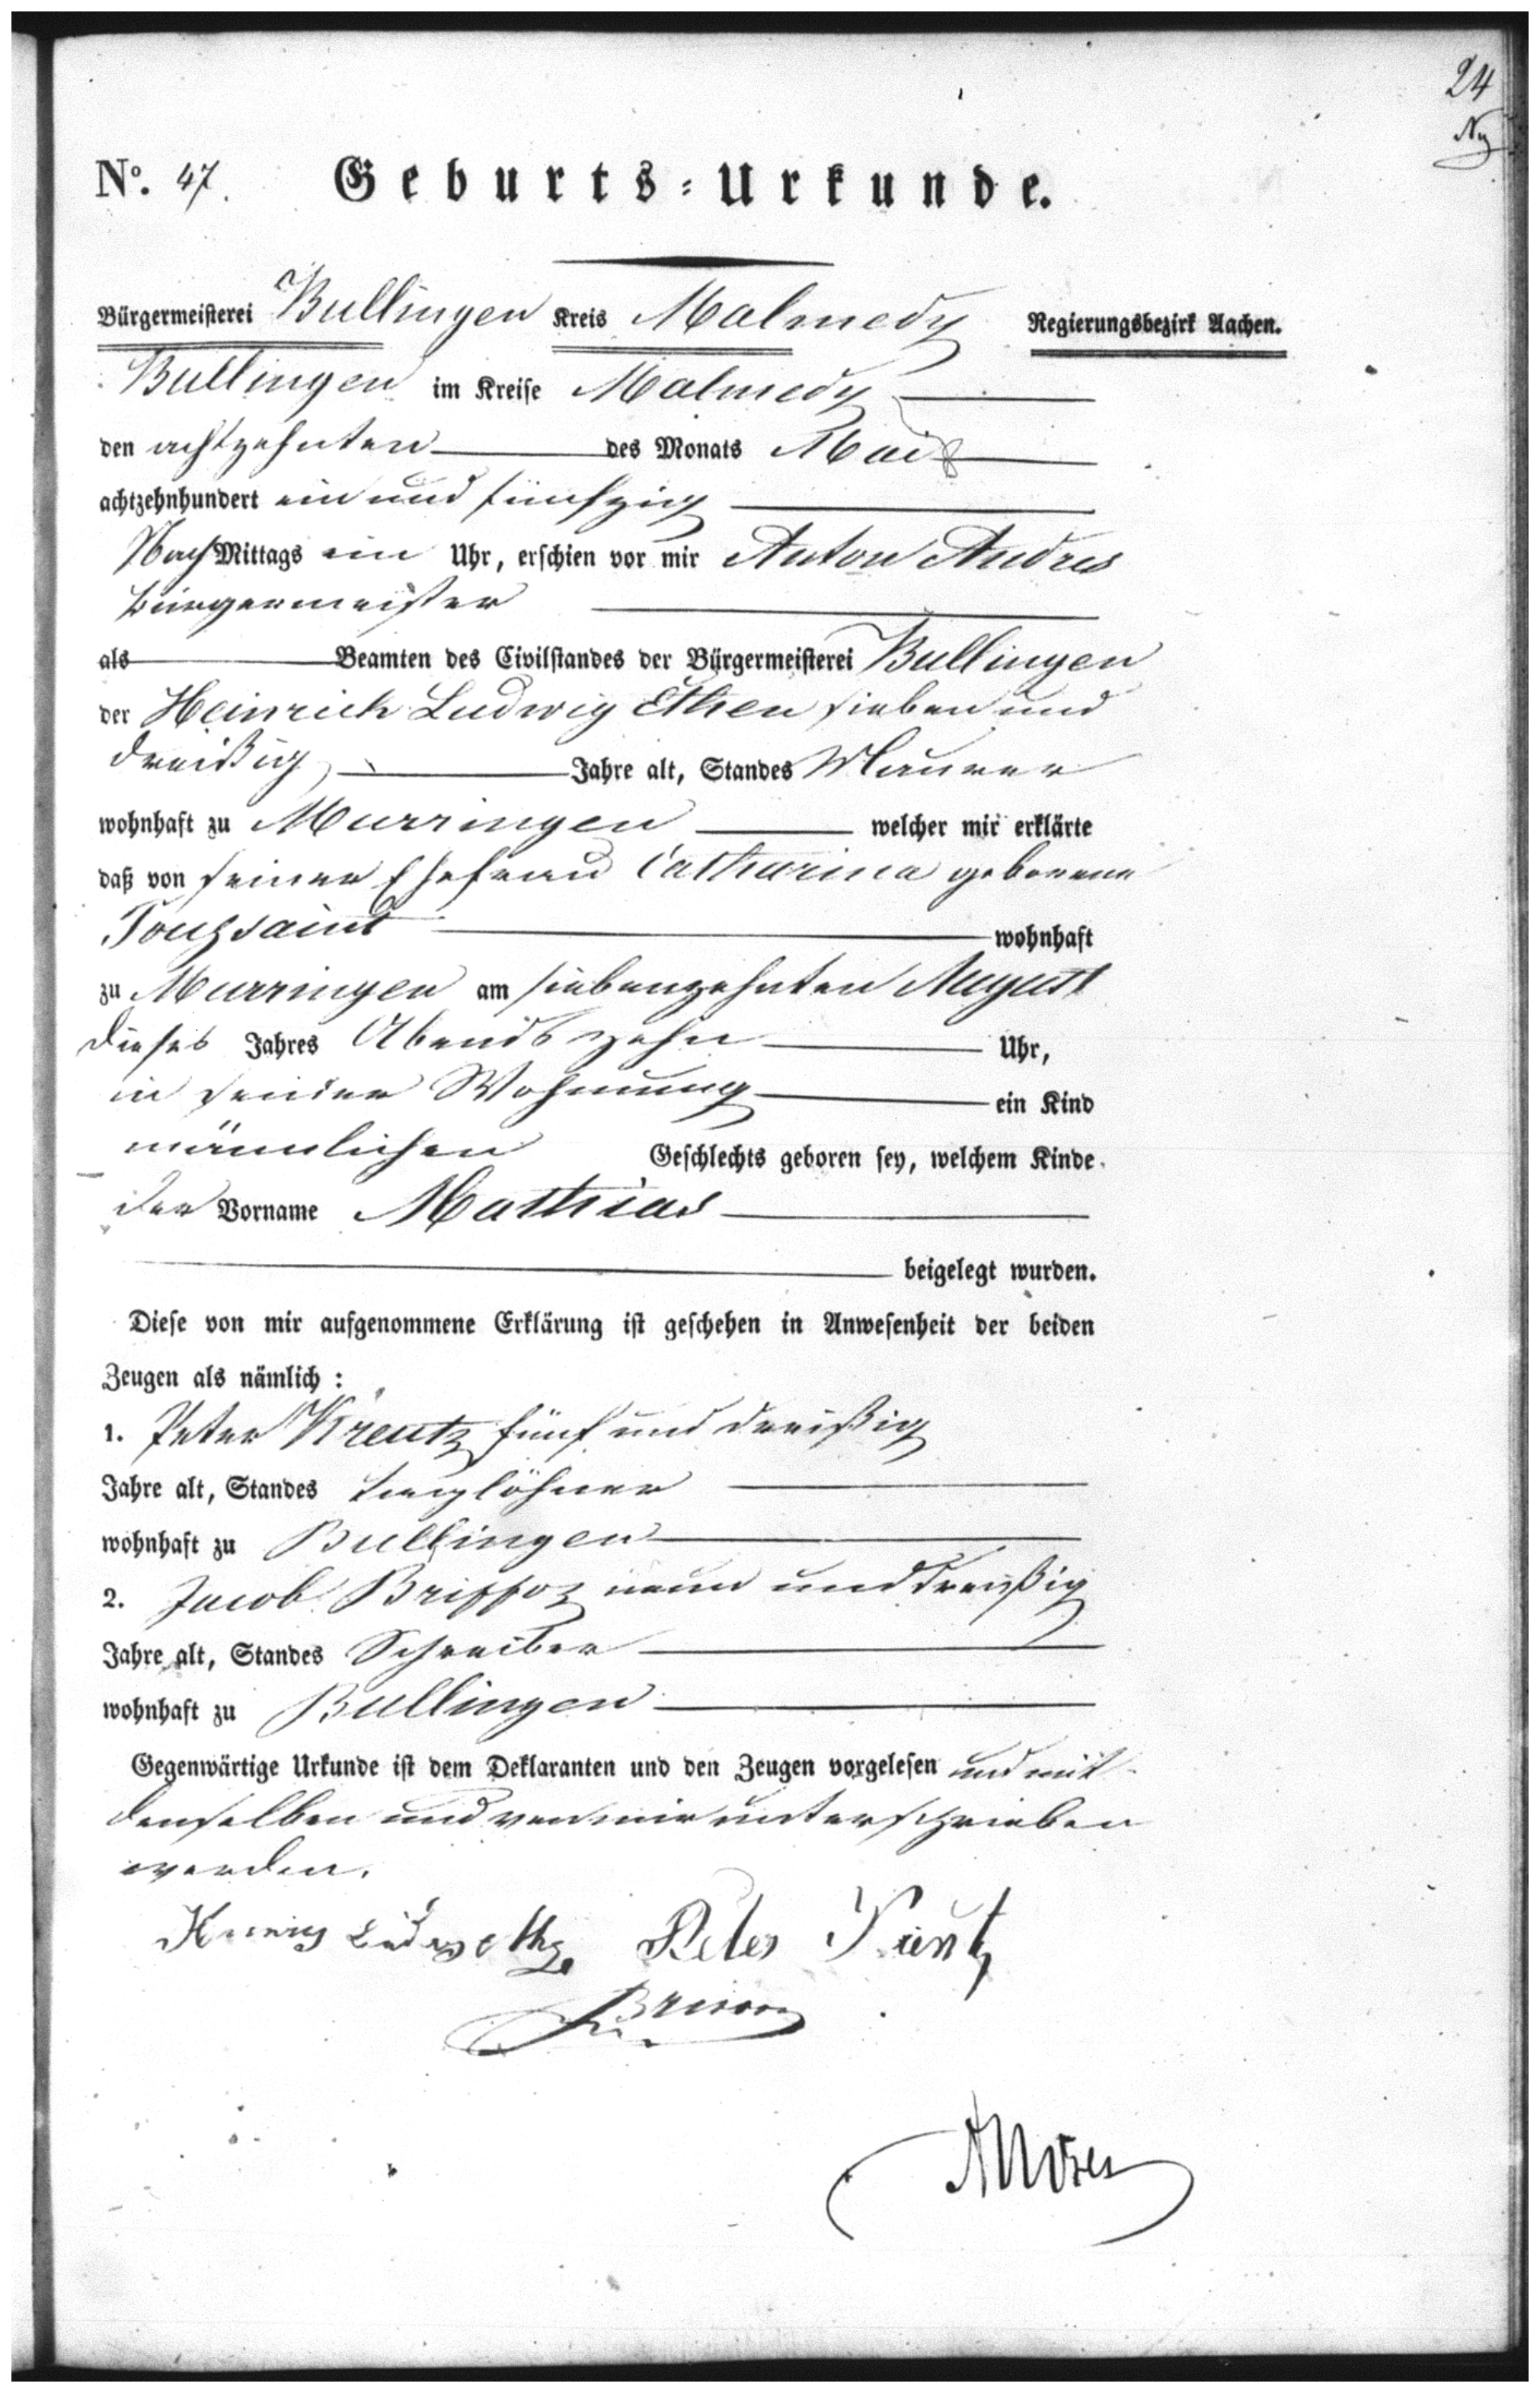 24
No. 47. Geburts-Urkunde.
Bürgermeisterei Bullingen Kreis Malmedy Regierungsbezirk Aachen.
Bullingen im Kreise Malmedy
den achtzehnten des Monats Mai
achtzehnhundert ein und fünfzig
Nach Mittags ein Uhr, erschien vor mir Anton Andres
Bürgermeister
als Beamten des Civilstandes der Bürgermeisterei Bullingen
der Heinrich Ludwig Ethen sieben und
dreißig Jahre alt, Standes Maurer
wohnhaft zu Murringen welcher mir erklärte
daß von seiner Ehefrau Catharina geborene
Toussaint wohnhaft
zu Murringen am siebenzehnten August
dieses Jahres Abends zehn Uhr,
in seiner Wohnung ein Kind
männlichen Geschlechts geboren sey, welchem Kinde
der Vorname Mathias
beigelegt wurden.
Diese von mir aufgenommene Erklärung ist geschehen in Anwesenheit der beiden
Zeugen als nämlich :
1. Peter Kreutz fünf und dreißig
Jahre alt, Standes Taglöhner
wohnhaft zu Bullingen
2. Jacob neun und dreißig
Jahre alt, Standes Schreiber
wohnhaft zu Bullingen
Gegenwärtige Urkunde ist dem Deklaranten und den Zeugen vorgelesen und mit
denselben und von mir unterschrieben
worden.
Peter
Andres